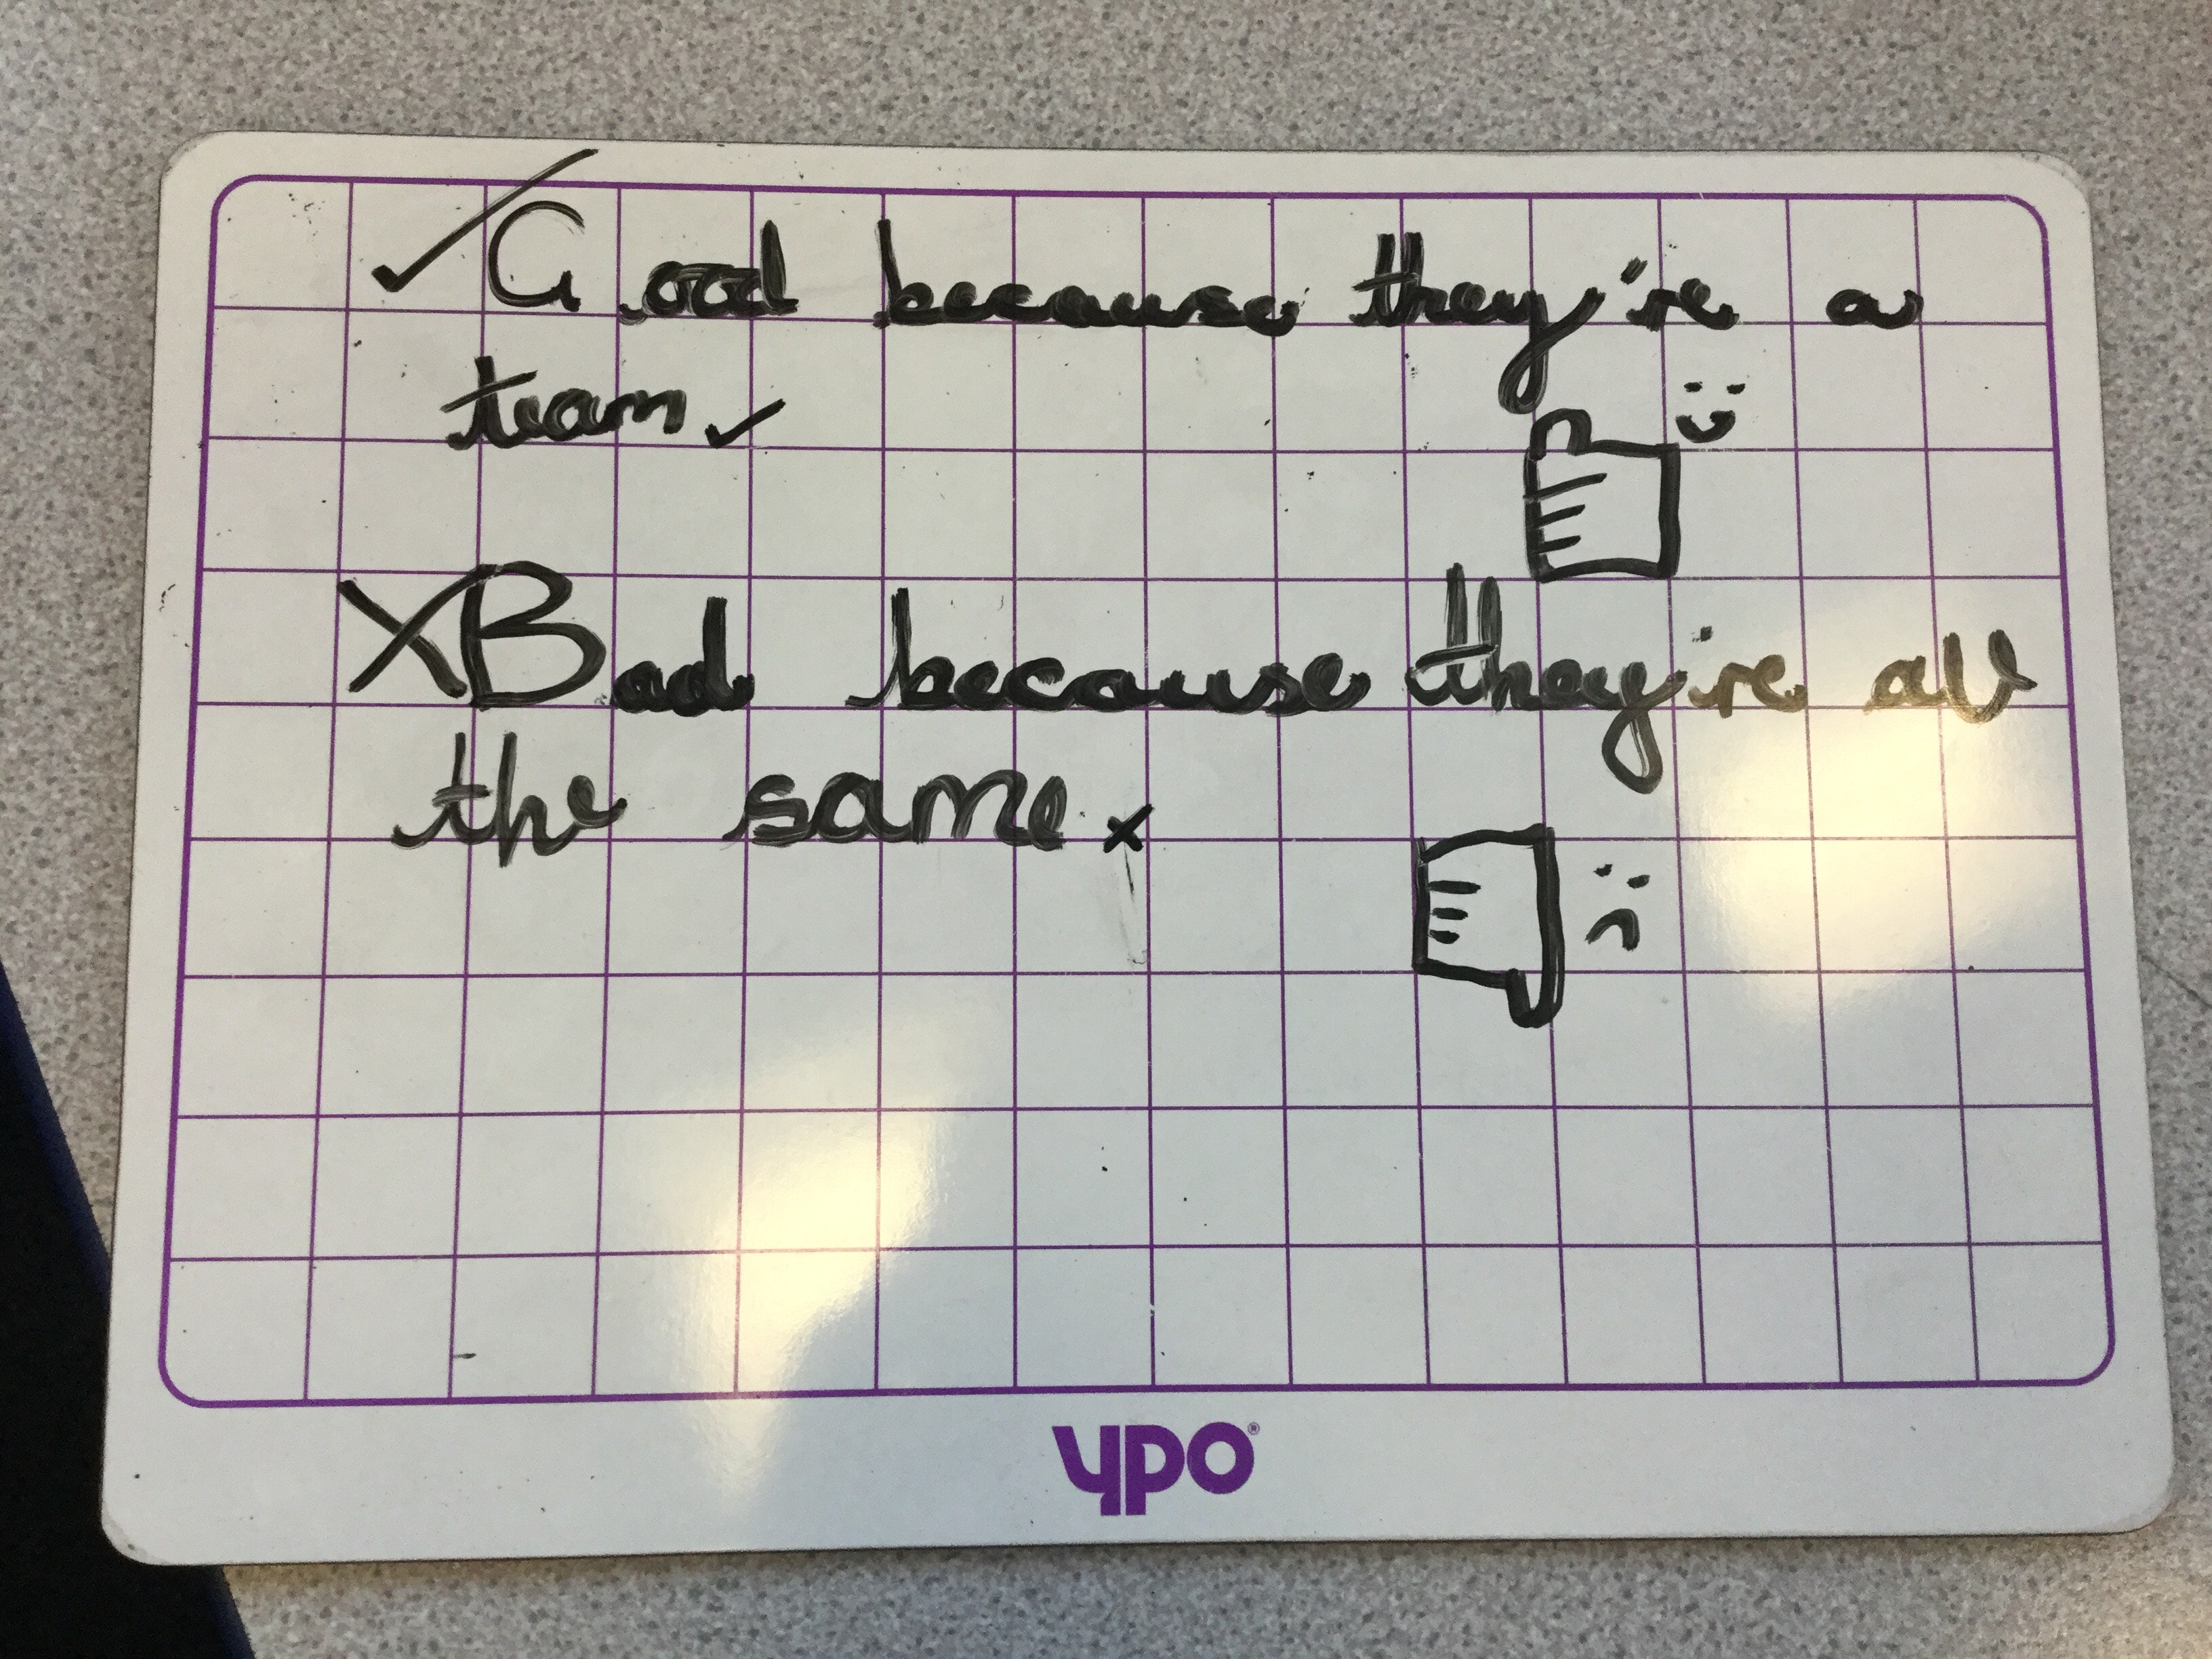 ✓ Good because they're a
team ✓
X Bad because they're all
the same. x
ypo®